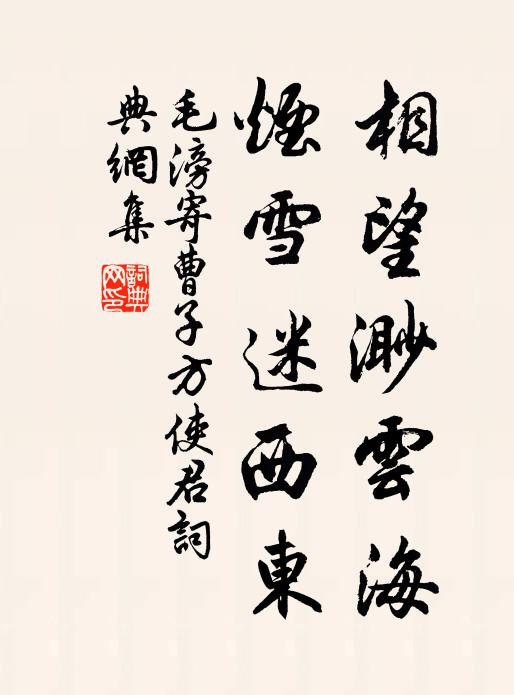 相望渺雲海
煙雪迷西東
毛滂寄曹子方使君詞
典網集
詞典
网印